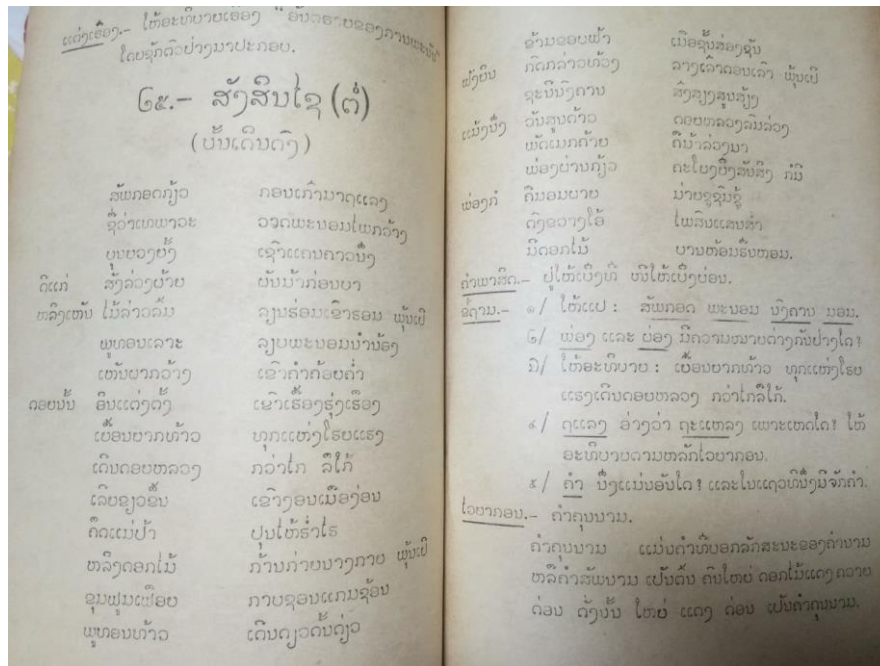 ແຕ່ງເຣື່ອງ.– ໃຫ້ອະທິບາຍເຣື່ອງ "ອັນຕຣາຍຂອງການພະນັນ
ໂດຍຊັກຕົວຢ່າງມາປະກອບ.
໒໕.– ສັງສິນໄຊ (ຕໍ່)
(ບັ້ນເດີນດົງ)
ສັພກອດກ້ຽວ ກອນເກົ້າມາດຖແລງ
ຊື່ວ່າເທພາວະ ວາດພະນອມໄພກວ້າງ
ບຸນຍວງຍັ້ງ ເຊົາແດນຄາວນຶ່ງ
ດີແກ່ ສັງລ່ວງຜ້າຍ ຜັນມ້າກ່ອນບາ
ຫລິງເຫັນ ໄມ້ລ່າວລົ້ມ ລຽນຮ່ອມເຂົາຮອມ ພຸ້ນເຍີ
ພູທອນເລາະ ລຽບພະນອມນຳນ້ອງ
ເຫັນຜາກວ້າງ ເຂົາຄຳຄ້ອຍຄ່ຳ
ດອຍນັ້ນ ອິນແຕ່ງຕັ້ງ ເຂົາເຮື້ອງຮຸ່ງເຮືອງ
ເຍື້ອນຍາກທ້າວ ທຸກແຫ່ງໂຮຍແຮງ
ເດີນດອຍຫລວງ ກວ່າໄກ ລືໃກ້
ເລີຍຂຽວຂຶ້ນ ເຂົາງອນເມືອງ່ອນ
ຄຶດແມ່ປ້າ ປຸນໃຫ້ຮ່ຳໄຮ
ຫລິງດອກໄມ້ ກ້ານກ່າຍນາງກາຍ ພຸ້ນເຍີ
ຂຸມຟູມເຟືອຍ ກາບຊອນແກມຊ້ອນ
ພູທອນທ້າວ ເດີນດຽວດັ້ນດ່ຽວ
ຂ້າມຂອບຟ້າ ເມືອຊັ້ນສ່ອງຊັນ
ຟັງຍິນ ກົດກລ່າວທ້ວງ ລາງເລົ່າຄອນເລົາ ພຸ້ນເຍີ
ຊະນີນົງຄານ ສົ່ງສຽງສູນສ້ຽງ
ແມ້ງນຶ່ງ ວັນສູນດ້າວ ດອຍຫລວງລົມລ່ວງ
ພັດເມກຄ້າຍ ຄືນ້ຳລ່ວງມາ
ພ່ອງຜ່ານກ້ຽວ ຄະໂຍງຍຶ່ງສັບສິງ ກໍມີ
ພ່ອງກໍ ຄືນອມຍາຍ ມ່າຍຊູຊົມຊູ້
ດົງຂວາງໂອ້ ໄພສິນແສນສ່ຳ
ມີດອກໄມ້ ບານຫ້ອມຮື່ນຫອມ.
ຄຳພາສິດ.– ປູ່ໃຫ້ເບິ່ງທີ່ ໜີໃຫ້ເບິ່ງບ່ອນ.
ຂໍ້ຖາມ.– ໑/ ໃຫ້ແປ : ສັພກອດ ພະນອມ ນົງຄານ ນອມ.
໒/ ພ່ອງ ແລະ ຍ່ອງ ມີຄວາມໝາຍຕ່າງກັນຢ່າງໃດ?
໓/ ໃຫ້ອະທິບາຍ : ເຍື້ອນຍາກທ້າວ ທຸກແຫ່ງໂຮຍ
ແຮງເດີນດອຍຫລວງ ກວ່າໄກລືໃກ້.
໔/ ຖແລງ ອ່ານວ່າ ຖະແຫລງ ເພາະເຫດໃດ? ໃຫ້
ອະທິບາຍຕາມຫລັກໄວຍາກອນ.
໕/ ຄຳ ນຶ່ງແມ່ນອັນໃດ? ແລະໃນແຖວທີນຶ່ງມີຈັກຄຳ.
ໄວຍາກອນ.– ຄຳຄຸນນາມ.
ຄຳຄຸນນາມ ແມ່ນຄຳທີ່ບອກລັກສະນະຂອງຄຳນາມ
ຫລືຄຳສັພນາມ ເປັນຕົ້ນ ຄົນໃຫຍ່ ດອກໄມ້ແດງ ຄວາຍ
ດ່ອນ ດັ່ງນັ້ນ ໃຫຍ່ ແດງ ດ່ອນ ເປັນຄຳຄຸນນາມ.